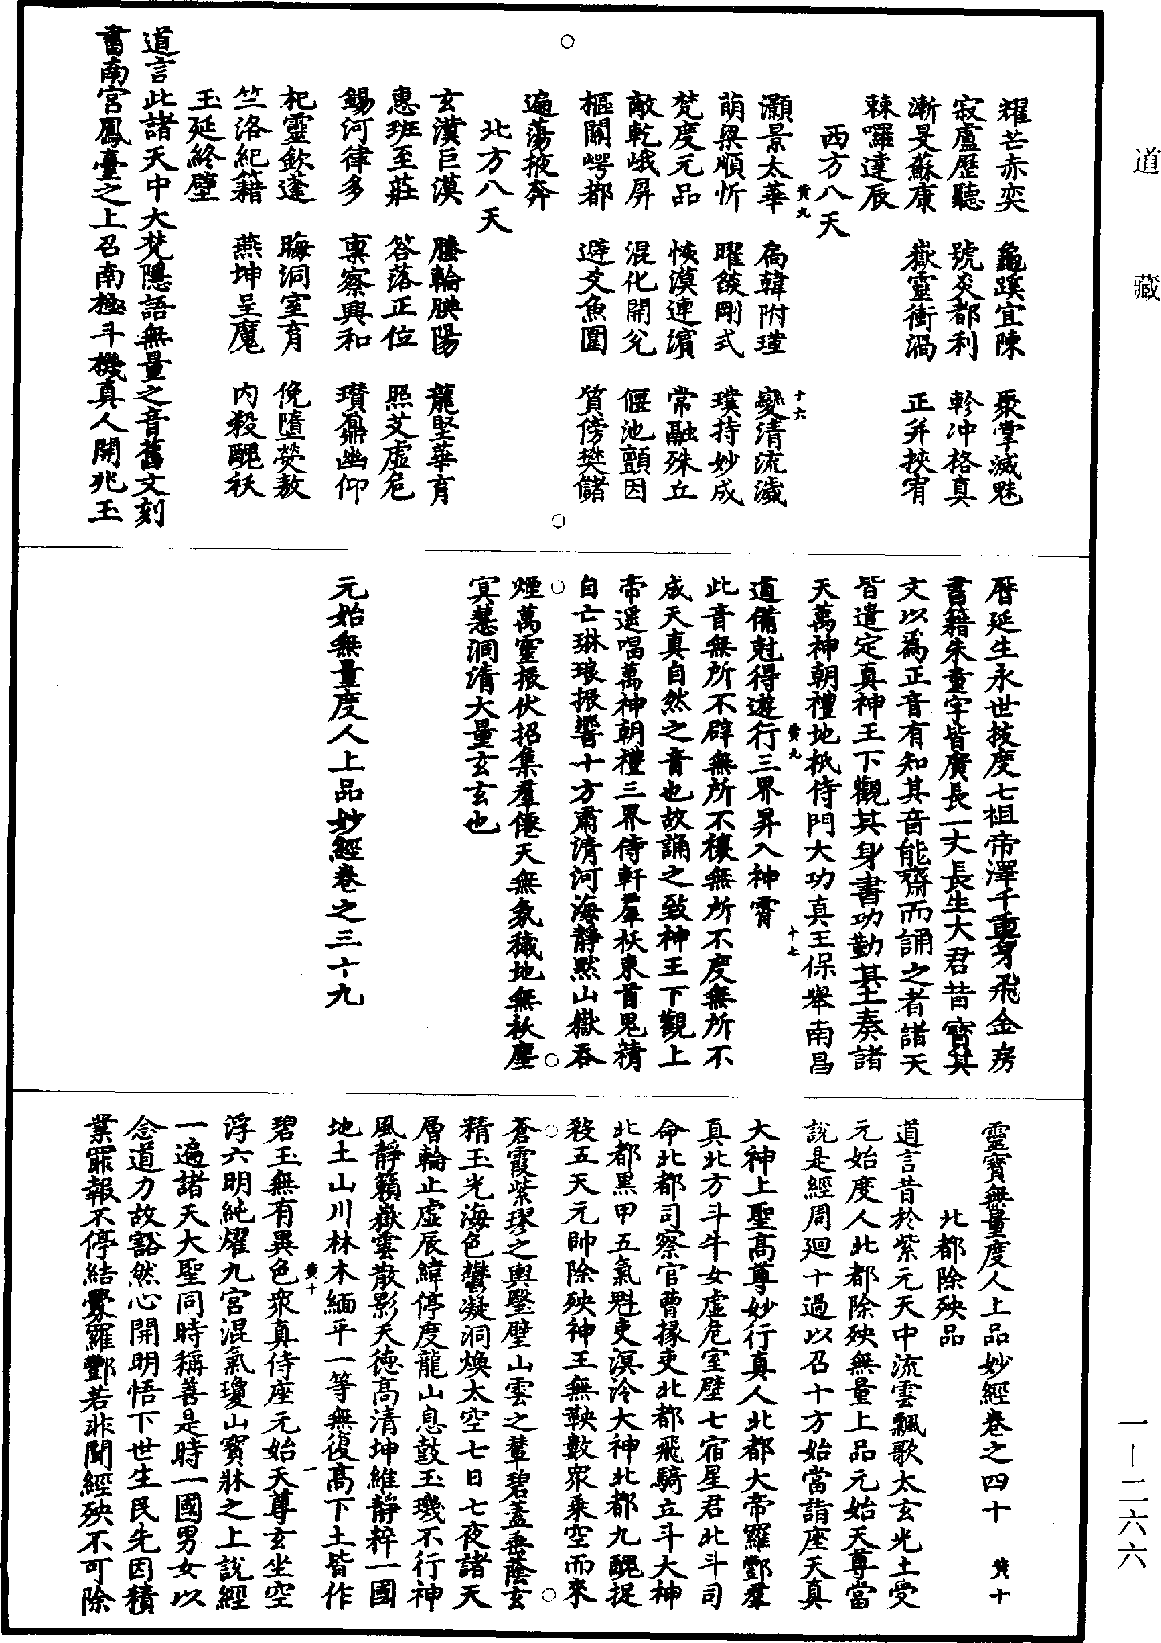 道藏
耀芒赤奕　龜蹊宜陳　聚掌滅魅
寂盧歷聽　號炎都利　軫沖格真
漸旻蘇康　嶽靈衝渦　正并挾宥
棘囉達辰
西方八天
灝景太華　扃韓附瑝　變清流濊
萌梁順忻　曜餤剛式　璞持妙成
梵度元品　恢漠連濱　常融殊丘
敵乾峨屏　混化開兊　偃池顫因
樞關崿都　避爻魚圖　質傍樊儲
遍蕩掖奔
北方八天
玄漢巨漠　騰輪腴陽　龍堅華育
惠班至莊　答落正位　照艾虛危
錫河律多　稟察興和　瓚鼐幽仰
杞靈欽蓬　晦洞室育　俛墮熒敖
竺洛紀籍　燕坤呈魔　內殺醜袄
玉延終壁
道言此諸天中大梵隱語無量之音舊文刻
書南宮鳳臺之上召南極斗機真人開兆玉
黃九
十六
曆延生永世拔度七祖帝澤千重身飛金房
書籍朱童字皆廣長一丈長生大君昔寶其
文以為正音有知其音能齋而誦之者諸天
皆遣定真神王下觀其身書功勤其土奏諸
天萬神朝禮地祇侍門大功真王保舉南昌
黃九
十七
道備尅得遊行三界昇入神霄
此音無所不辟無所不禳無所不度無所不
成天真自然之音也故誦之致神王下觀上
帝遥唱萬神朝禮三界侍軒羣袄束首鬼精
自亡琳琅振響十方肅清河海靜默山嶽吞
煙萬靈振伏招集羣僊天無氛穢地無袄塵
冥慧洞清大量玄玄也
元始無量度人上品妙經卷之三十九
靈寶無量度人上品妙經卷之四十　黃十
北都除殃品
道言昔於紫元天中流雲飄歌太玄光土受
元始度人北都除殃無量上品元始天尊當
說是經周迴十過以召十方始當詣座天真
大神上聖高尊妙行真人北都大帝羅酆羣
真北方斗牛女虛危室壁七宿星君北斗司
命北都司察官曹掾吏北都飛騎立斗大神
北都黑甲五氣魁吏溟泠大神北都九醜捉
殺五天元帥除殃神王無鞅數眾乘空而來
蒼霞紫璆之輿墼壁山雲之輦碧蓋垂蔭玄
精玉光海色鬱凝洞煥太空七日七夜諸天
層輪止虛辰緯停度龍山息鼓玉璣不行神
風靜籟嶽雲散影天德高清坤維靜粹一國
地土山川林木緬平一等無復高下土皆作
黃十
一
碧玉無有異色眾真侍座元始天尊玄坐空
浮六明純燿九宮混氣瓊山寶牀之上說經
一遍諸天大聖同時稱善是時一國男女以
念道力故豁然心開明悟下世生民先因積
業罪報不停結釁羅酆若非聞經殃不可除
一—二六六